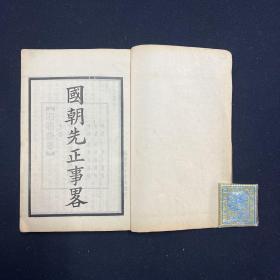 國朝先正事畧